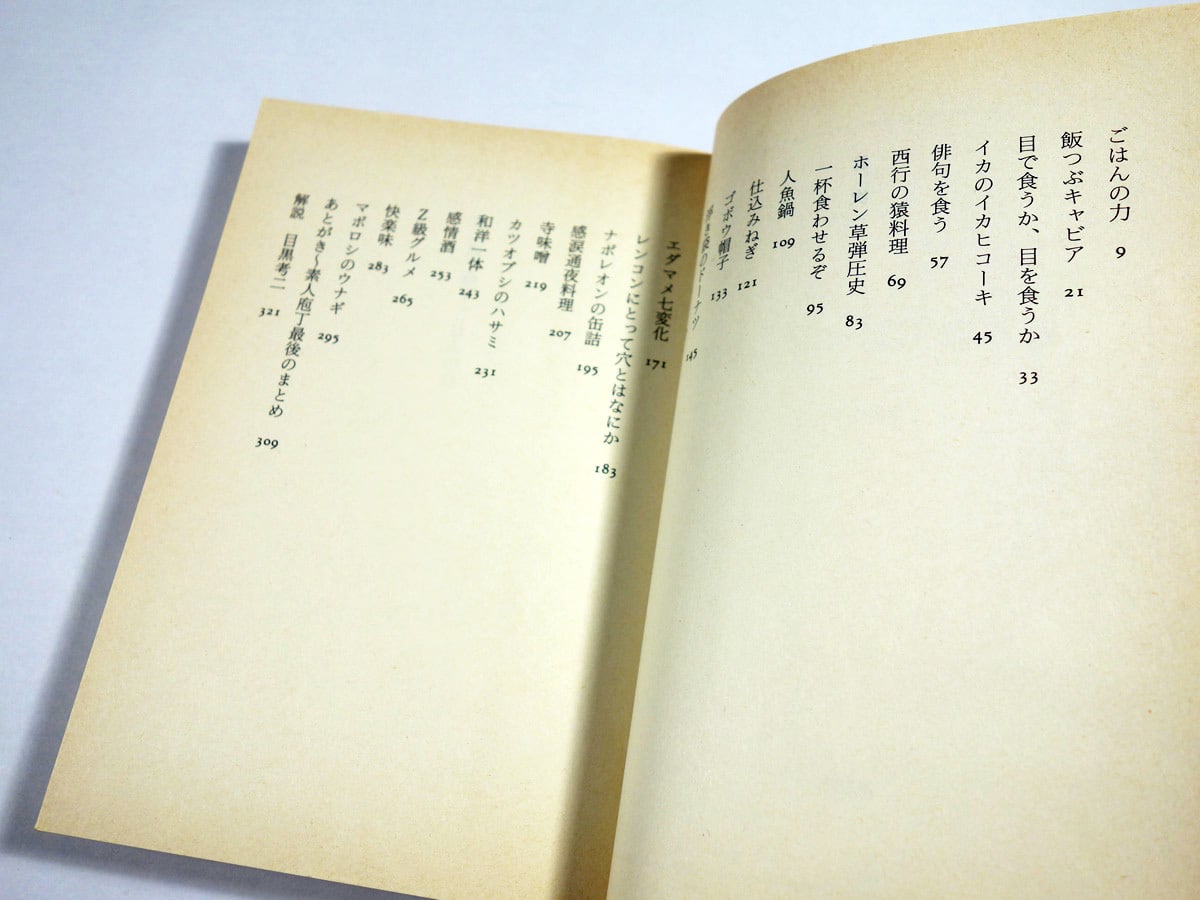 ごはんの力 9
飯つぶキャビア 21
目で食うか、目を食うか 33
イカのイカヒコーキ 45
俳句を食う 57
西行の猿料理 69
ホーレン草弾圧史 83
一杯食わせるぞ 95
人魚鍋 109
仕込みねぎ 121
ゴボウ帽子 133
のドーナツ 145
エダマメ七変化 171
レンコンにとって穴とはなにか 183
ナポレオンの缶詰 195
感涙通夜料理 207
寺味噌 219
カツオブシのハサミ 231
和洋一体 243
感情酒 253
Z級グルメ 265
快楽味 283
マボロシのウナギ 295
あとがき〜素人庖丁最後のまとめ 309
解説 目黒考二 321